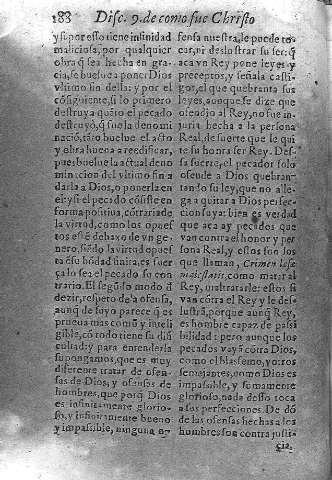 188 Disc. 9. de como fue Christo
y si por esto tiene infinidad
maliciosa, por qualquier
obra q̃ sea hecha en gra-
cia, se buelue a poner Dios
vltimo fin della: y por el
cõsiguiente, si lo primero
destruya quãto el pecado
destruyó, q̃ fue la denomi-
nació, tãto buelue el acto
y obra buena a reedificar,
pues buelue la actual deno
minacion del vltimo fin a
darla a Dios, o ponerla en
el: y si el pecado cõsiste en
forma positiua, cõtraria de
la virtud, como los opues
tos estẽ debaxo de vn ge-
nero, siẽdo la virtud opues
ta de bõdad finita, es fuer
ça lo sea el pecado su con-
trario. El segũdo modo d̃
dezir, respeto de la ofensa,
aunq̃ de suyo parece q̃ es
prueua mas comũ y inteli
gible, cõ todo tiene su difi
cultad: y para entenderla
supongamos, que es muy
diferente tratar de ofen-
sas de Dios, y ofensas de
hombres, que porq̃ Dios
es infinitamente glorio-
so, y infinitamente bueno
y impassible, ninguna o-
fensa nuestra, le puede to-
car, ni deslustrar su ser: q̃
aca vn Rey pone leyes y
preceptos, y señala casti-
gos, el que quebranta sus
leyes, aunque se dize que
ofendio al Rey, no fue in-
juria hecha a la persona
Real, de suerte que le qui-
te su honra ser Rey. Des-
ta suerte, el pecador solo
ofende a Dios quebran-
tando su ley, que no alle-
ga a quitar a Dios perfec-
cion suya: bien es verdad
que aca ay pecados que
van contra el honor y per
sona Real, y estos son los
que llaman, Crimen læsæ
maiestatis, como matar al
Rey, o maltratarle: estos si
van cõtra el Rey y le des-
lustrã, porque aunq̃ Rey,
es hombre capaz de passi
bilidad: pero aunque los
pecados vayã cõtra Dios,
como el blasfemo, y otros
semejantes, como Dios es
impassible, y sumamente
glorioso, nada desso toca
a sus perfecciones. De dõ
de las ofensas hechas a los
hombres son contra justi-
cia,